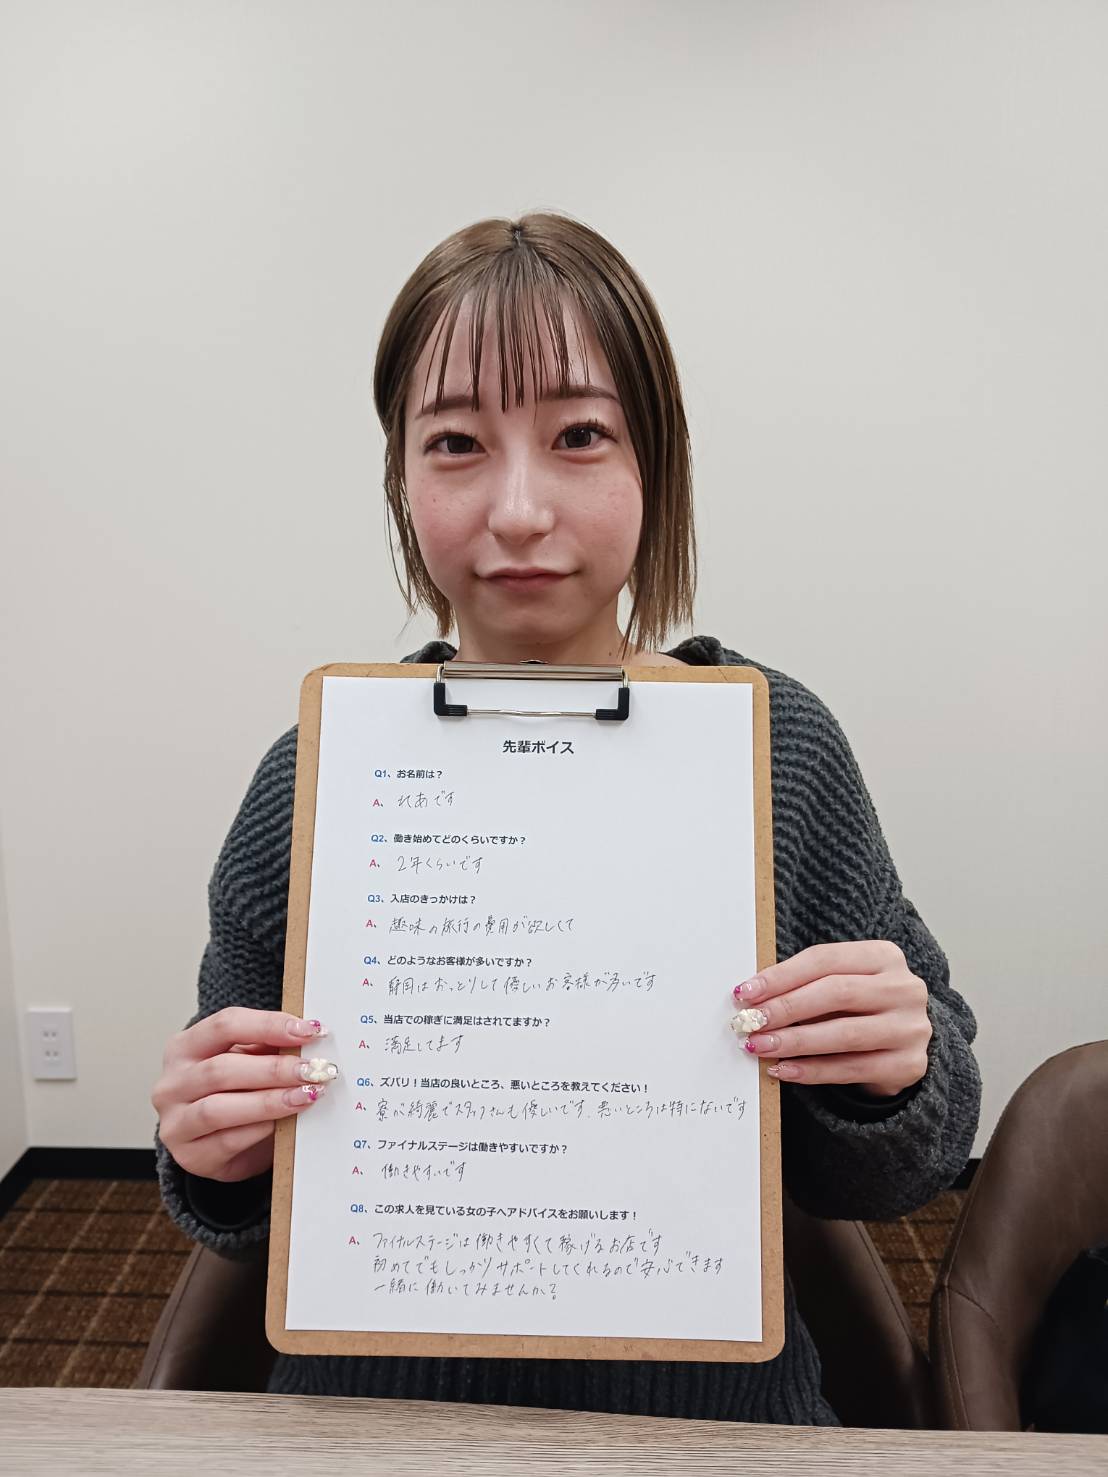 先輩ボイス
Q1、お名前は？
A、 れあです
Q2、働き始めてどのくらいですか？
A、 2年くらいです
Q3、入店のきっかけは？
A、 趣味の旅行の費用が欲しくて
Q4、どのようなお客様が多いですか？
A、 静岡はおっとりして優しいお客様が多いです
Q5、当店での稼ぎに満足はされてますか？
A、 満足してます
Q6、ズバリ！当店の良いところ、悪いところを教えてください！
A、 寮が綺麗でスタッフさんも優しいです、悪いところは特にないです
Q7、ファイナルステージは働きやすいですか？
A、 働きやすいです
Q8、この求人を見ている女の子へアドバイスをお願いします！
A、 ファイナルステージは働きやすくて稼げるお店です
初めてでもしっかりサポートしてくれるので安心できます
一緒に働いてみませんか？